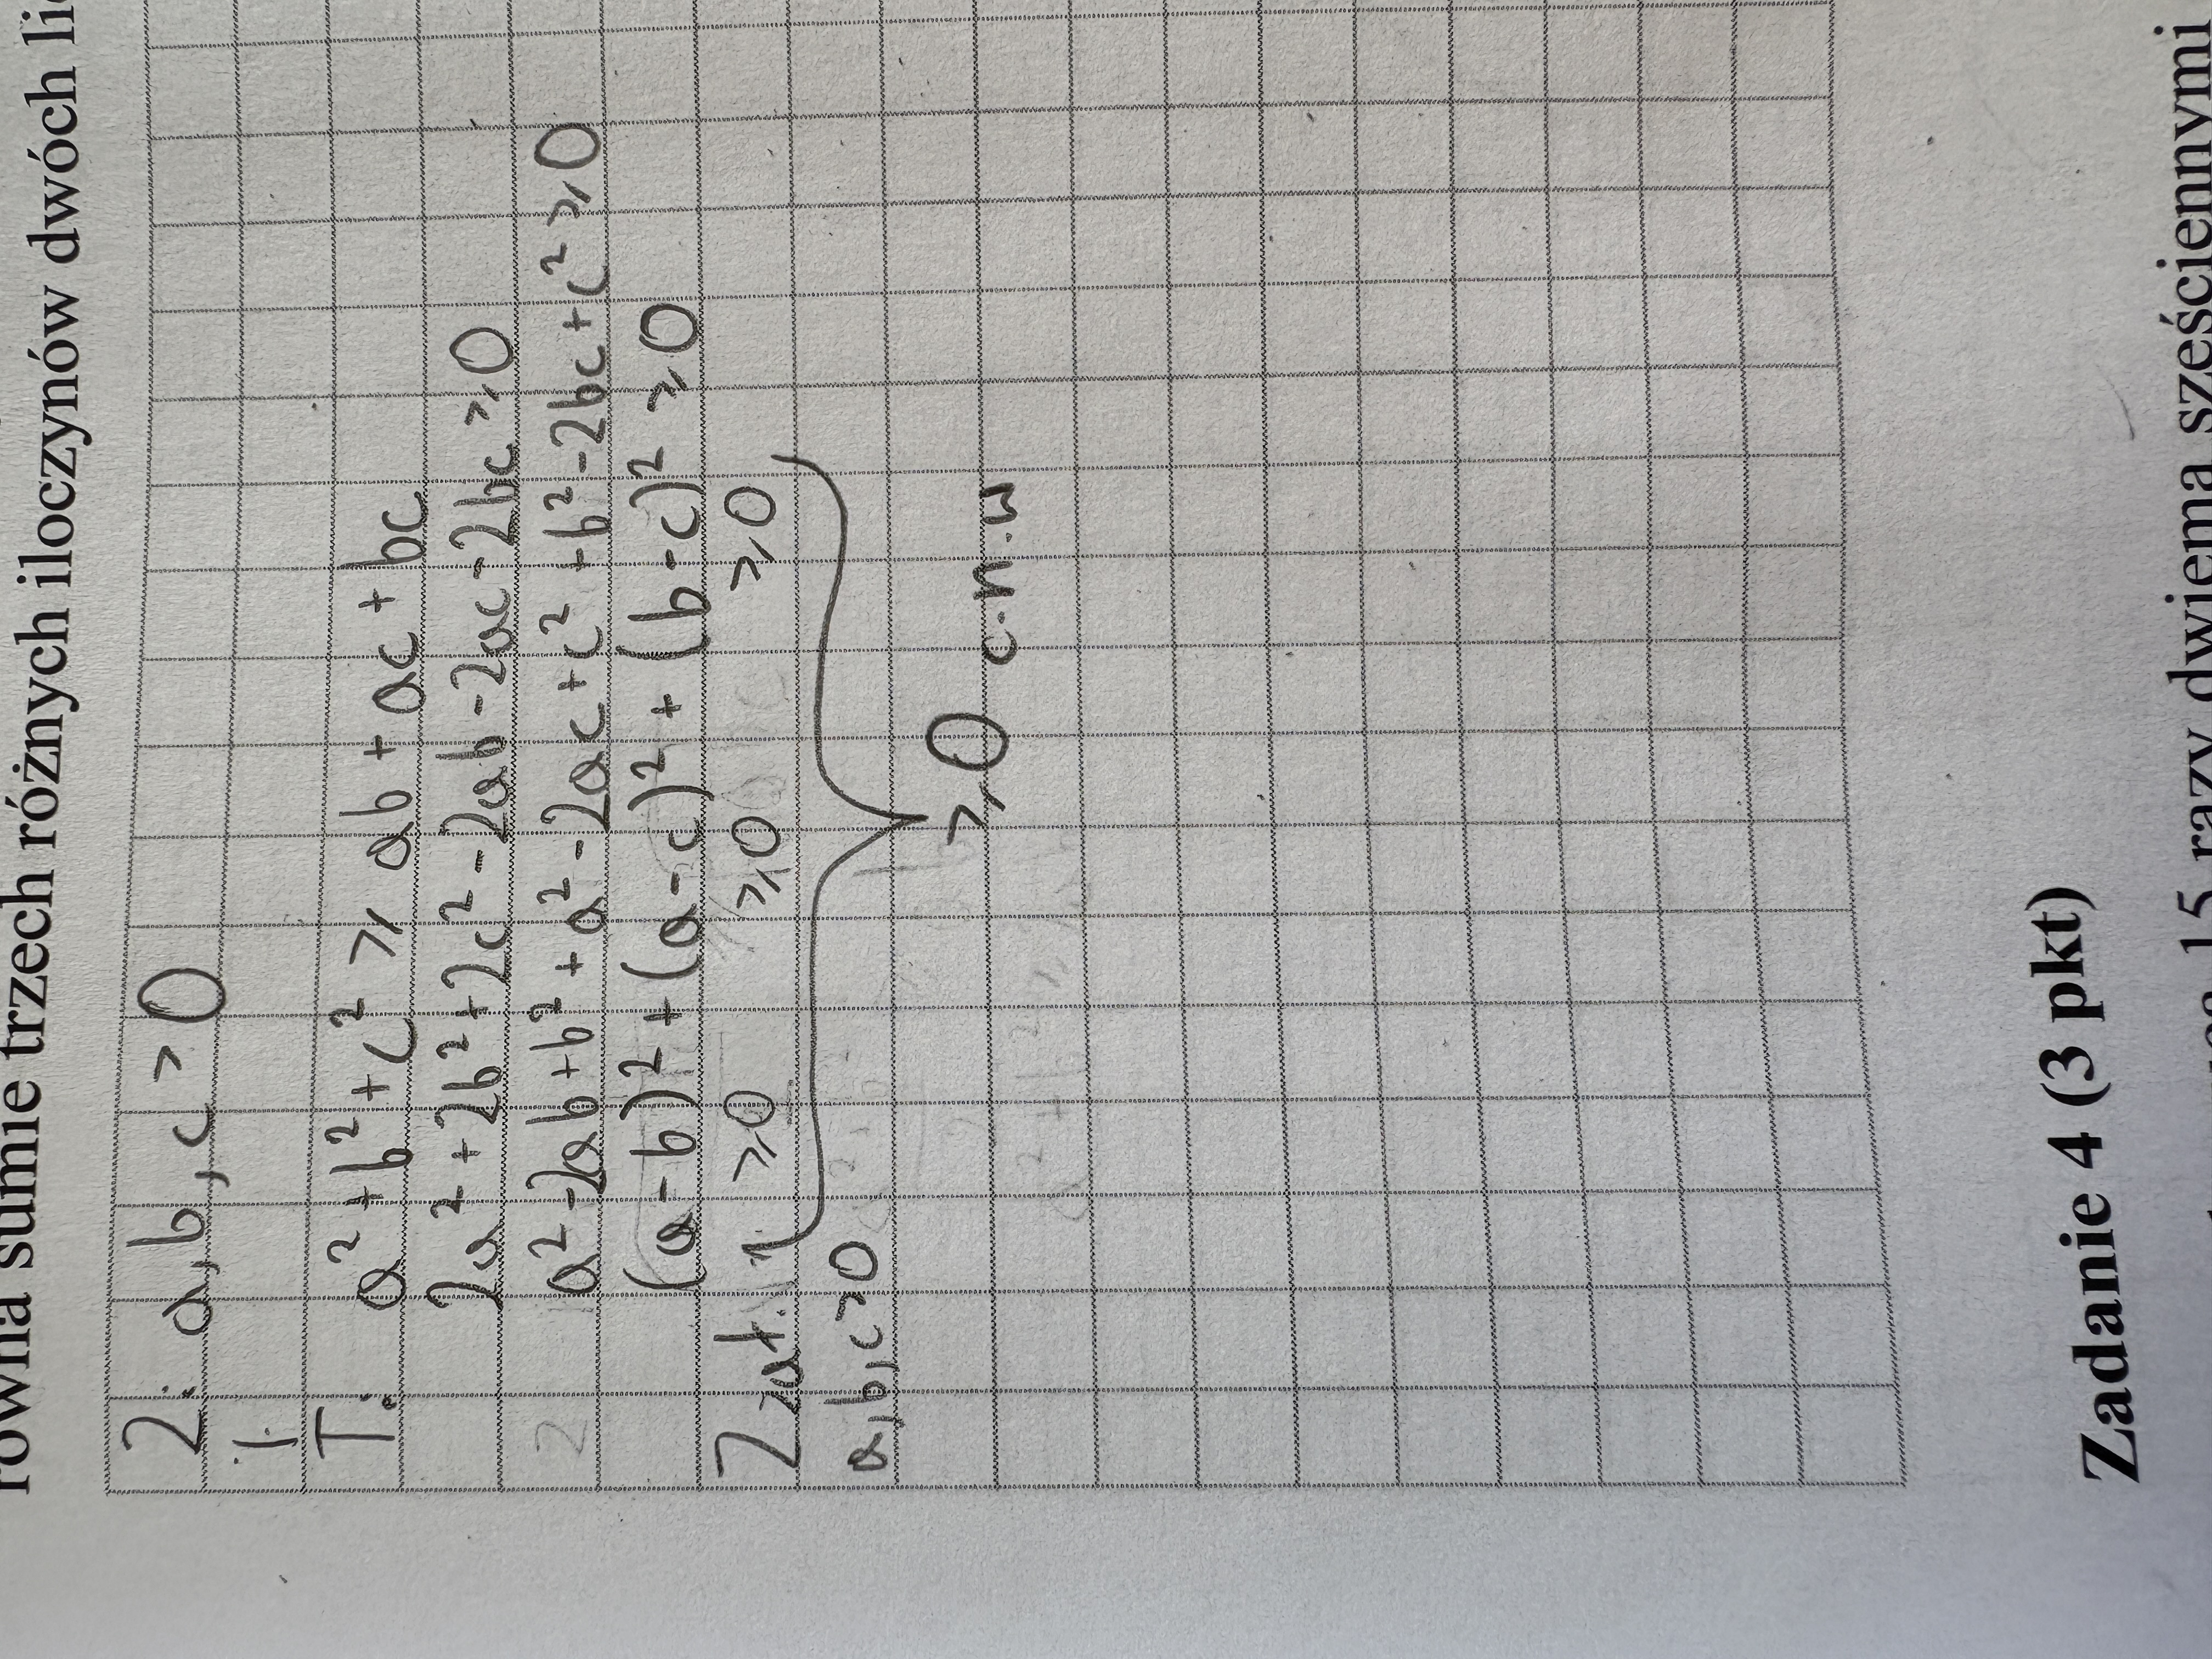 równa sumie trzech różnych iloczynów dwóch
Z: a,b,c > 0
i
T: a² + b² + c² ≥ ab + ac + bc
2a² + 2b² + 2c² - 2ab - 2ac - 2bc ≥ 0
a² - 2ab + b² + a² - 2ac + c² + b² - 2bc + c² ≥ 0
(a - b)² + (a - c)² + (b - c)² ≥ 0
Z zał. ≥0 ≥0 ≥0
a,b,c>0
≥0 c.n.w
Zadanie 4 (3 pkt)
15 razy dwiema sześciennymi